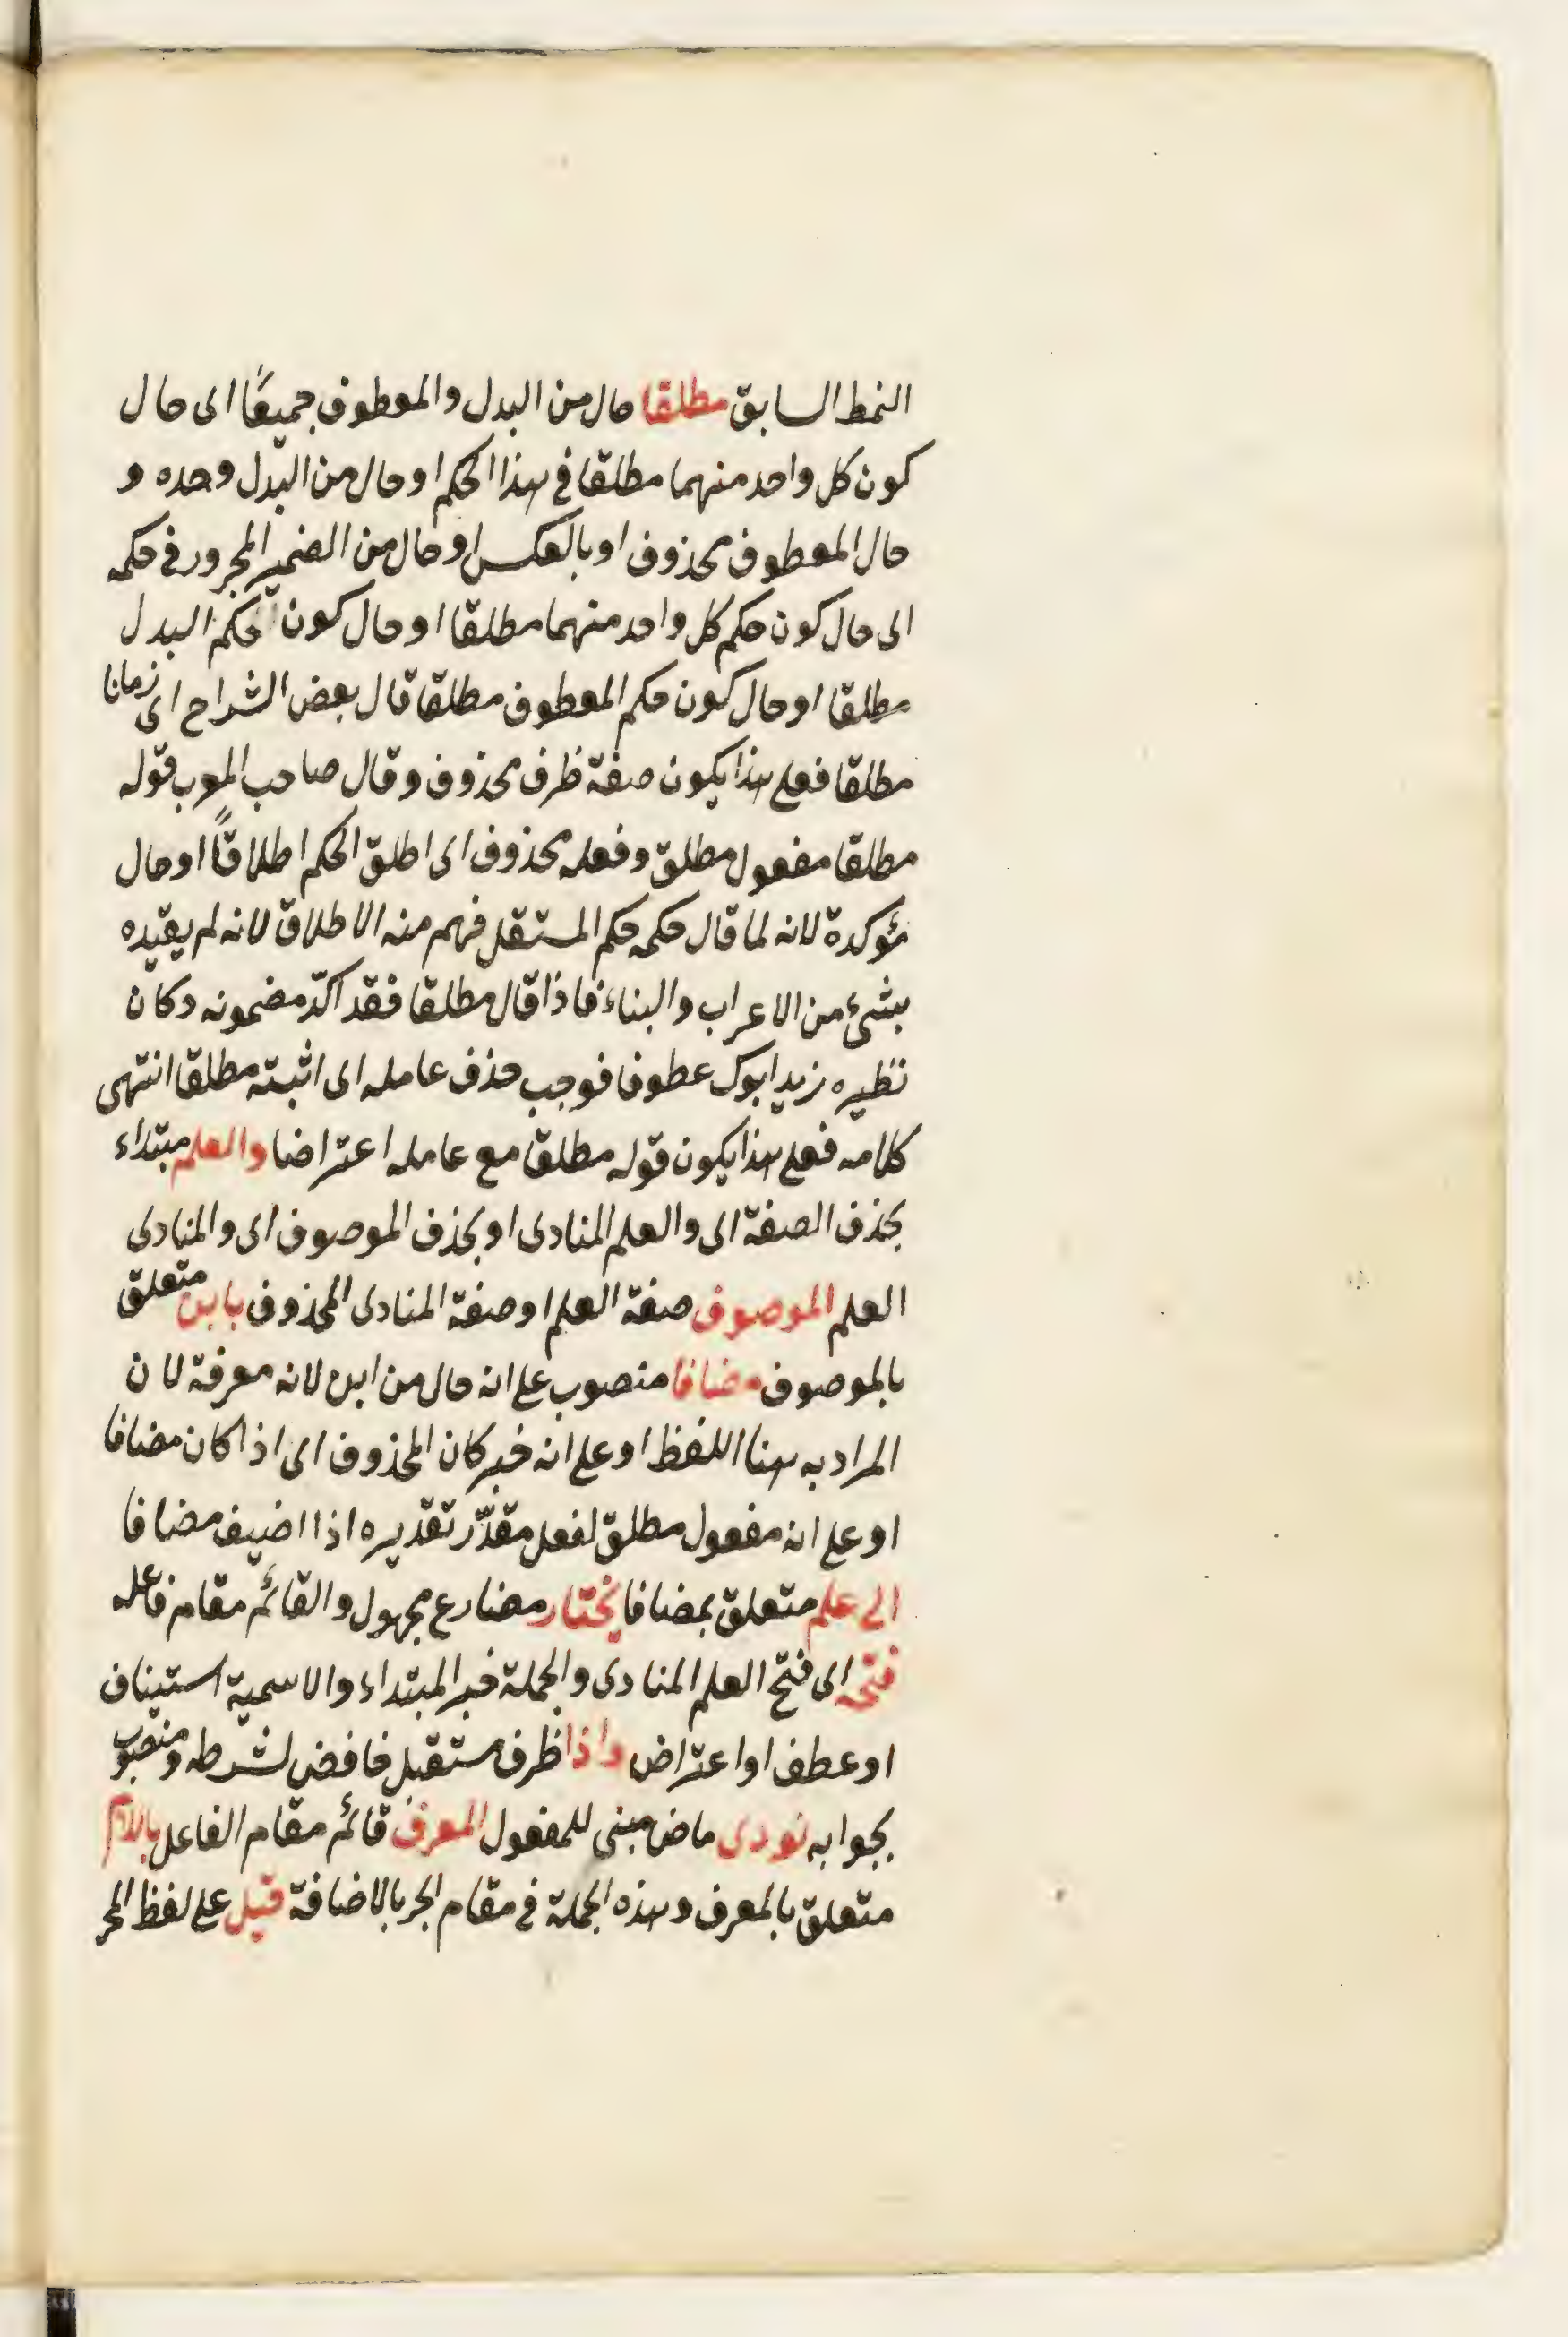 النمط السابق مطلقا حال من البدل والمعطوف جميعًا اى حال
كون كل واحد منهما مطلقا فى هذا الحكم او حال من البدل وحده و
حال المعطوف محذوف او بالعكس او حال من الضمير المجرور فى حكمه
اى حال كون حكم كل واحد منهما مطلقا او حال كون حكم البدل
مطلقا او حال كون حكم المعطوف مطلقا قال بعض الشراح اى زمانا
مطلقا فعلى هذا يكون صفة ظرف محذوف وقال صاحب المعرب قوله
مطلقا مفعول مطلق وفعله محذوف اى اطلق الحكم اطلاقًا او حال
مؤكدة لانه لما قال حكمه حكم المستقل فهم منه الاطلاق لانه لم يقيده
بشئ من الاعراب والبناء فاذا قال مطلقا فقد اكّد مضمونه وكان
نظيره زيد ابوك عطوفا فوجب حذف عامله اى اثبته مطلقا انتهى
كلامه فعلى هذا يكون قوله مطلقا مع عامله اعتراضا والعلم مبتداء
بحذف الصفة اى والعلم المنادى او بحذف الموصوف اى والمنادى
العلم الموصوف صفة العلم او صفة المنادى المحذوف بابن متعلق
بالموصوف مضافا منصوب على انه حال من ابن لانه معرفة لان
المراد به هنا اللفظ او على انه خبر كان المحذوف اى اذا كان مضافا
او على انه مفعول مطلق لفعل مقدّر تقديره اذا اضيف مضافا
الى علم متعلق بمضافا يختار مضارع مجهول والقائم مقام فاعله
فتحه اى فتح العلم المنادى والجملة خبر المبتداء والاسمية استيناف
او عطف او اعتراض واذا ظرف مستقبل خافض لشرطه ومنصوب
بجوابه نودى ماض مبنى للمفعول المعرف قائم مقام الفاعل باللام
متعلق بالمعرف وهذه الجملة فى مقام الجر بالاضافة قيل على لفظ المجر